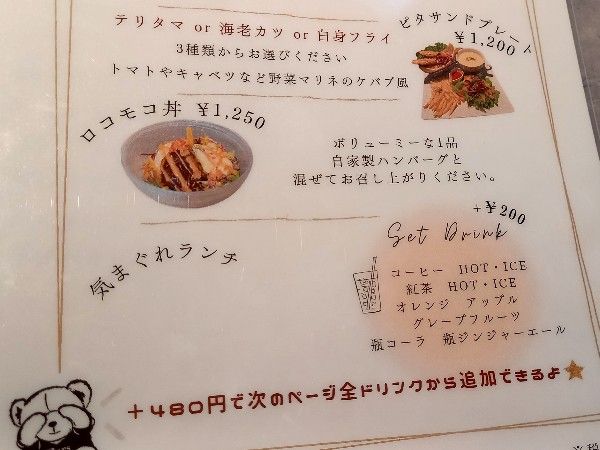 テリタマ or 海老カツ or 白身フライ
3種類からお選びください
トマトやキャベツなど野菜マリネのケバブ風
ピタサンドプレート
¥1,200
ロコモコ丼 ¥1,250
ボリューミーな1品
自家製ハンバーグと
混ぜてお召し上がりください。
気まぐれランチ
+¥200
Set Drink
コーヒー HOT・ICE
紅茶 HOT・ICE
オレンジ アップル
グレープフルーツ
瓶コーラ 瓶ジンジャーエール
+480円で次のページ全ドリンクから追加できるよ